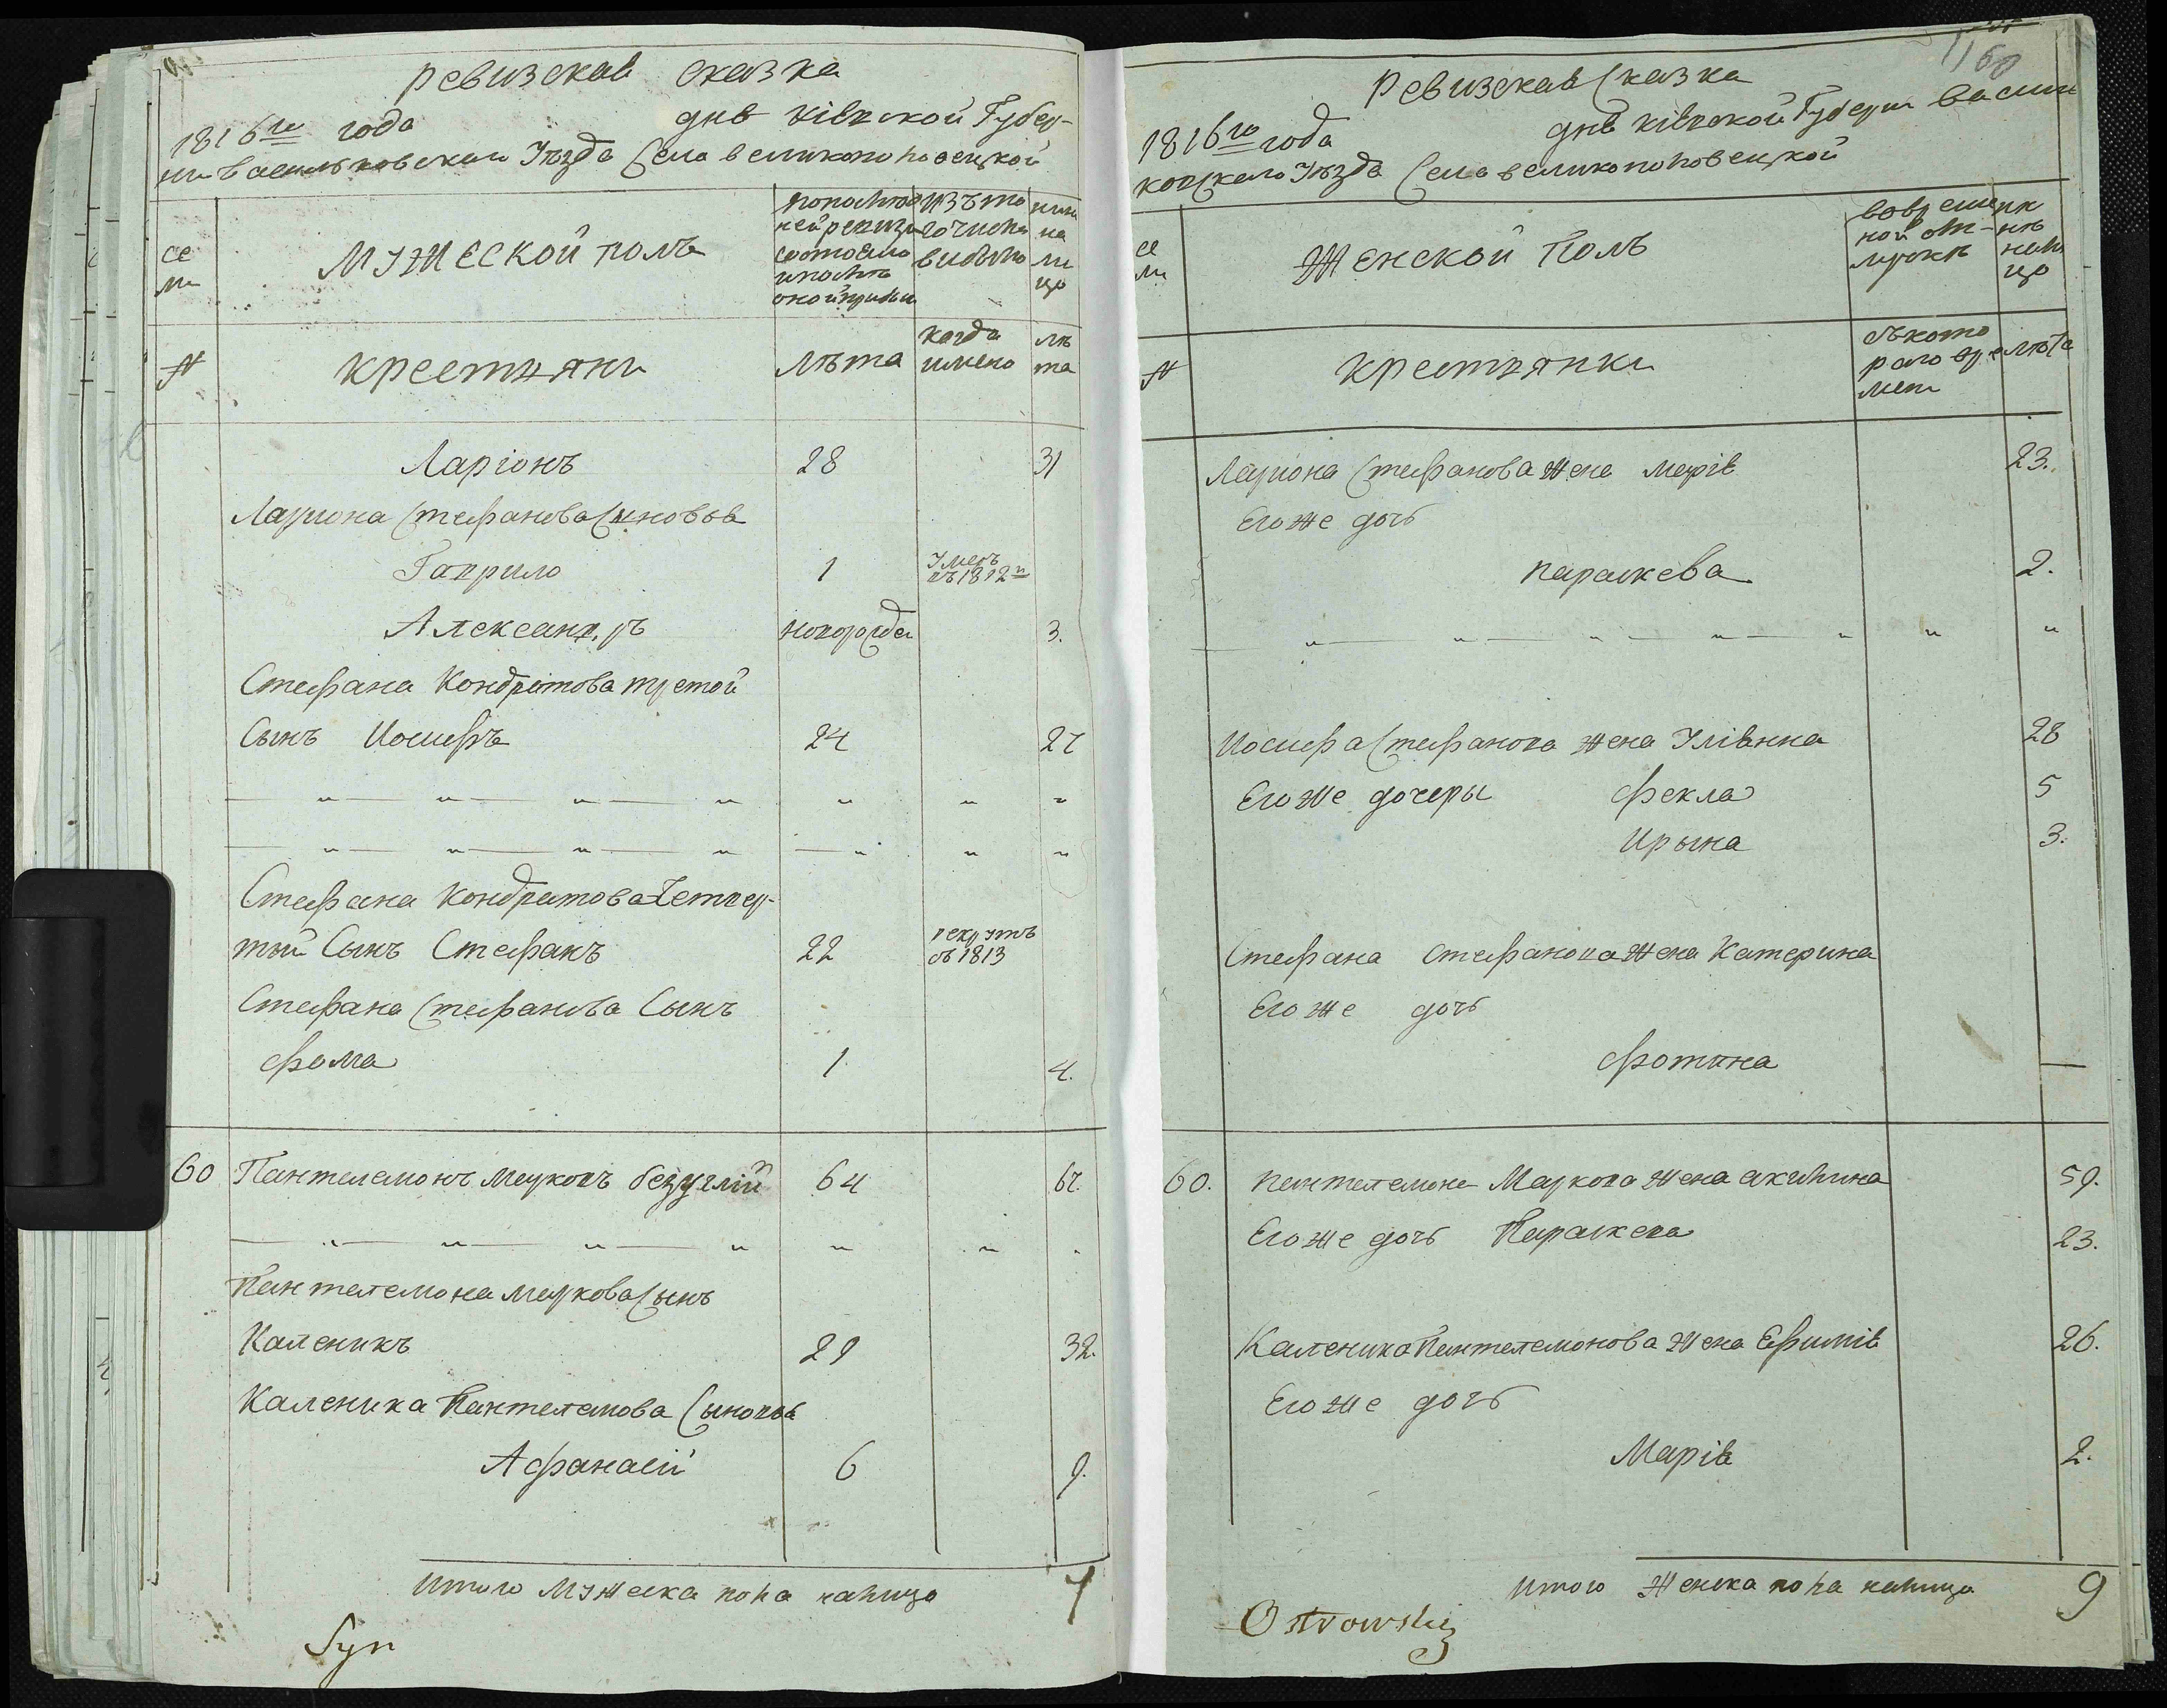 ревизская сказка
1816го года дня кіевской Губер-
нии васильковскаго Уезда Села великополовецкой
се
ми
мужеской полъ
по последней ревизи состояло и после оной прибыло
изъ того числа выбыло
ныне на лицо
N
крестьяни
лета
когда имено
лета
Ларіонъ 28 31
Лариона Стефанова Сыновья
Гаврило 1 Умеръ въ 1812м
Александръ новорожден 3.
Стефана Кондратова третой
Сынъ Иосифъ 24 27
Стефана Кондратова Четвер-
тый Сынъ Стефанъ 22 рекрутъ въ 1813
Стефана Стефанова Сынъ
Фома 1 4.
60 Пантелемонъ Марковъ безуглій 64 67.
Пантелемона маркова Сынъ
Каленикъ 29 32.
Каленика Пантелемова Сыновья
Афанасій 6 9.
итого мужеска пола налицо 7
Syn
1160
Ревизская Сказка
1816го года дня кіевской Губерни василь
ковскаго Уезда Села великополовецкой
се
ми
Женской Полъ
во временной отлучке
ныне налицо
N
крестьянки
съ котораго времени
лета
Лариона Стефанова жена марія 23.
Его же дочь
параскева 2.
Иосифа Стефанова жена Уліянна 28
Его же дочеры Фекла 5
Ирына 3.
Стефана Стефанова жена Катерина
Его же дочь
Фотина —
60. пантелемона Маркова жена акилина 59.
Его же дочь Параскева 23.
Каленика Пантелемонова жена Ефимія 26.
Его же дочь
Марія 2.
итого женска пола налицо 9
Ostrowskiej